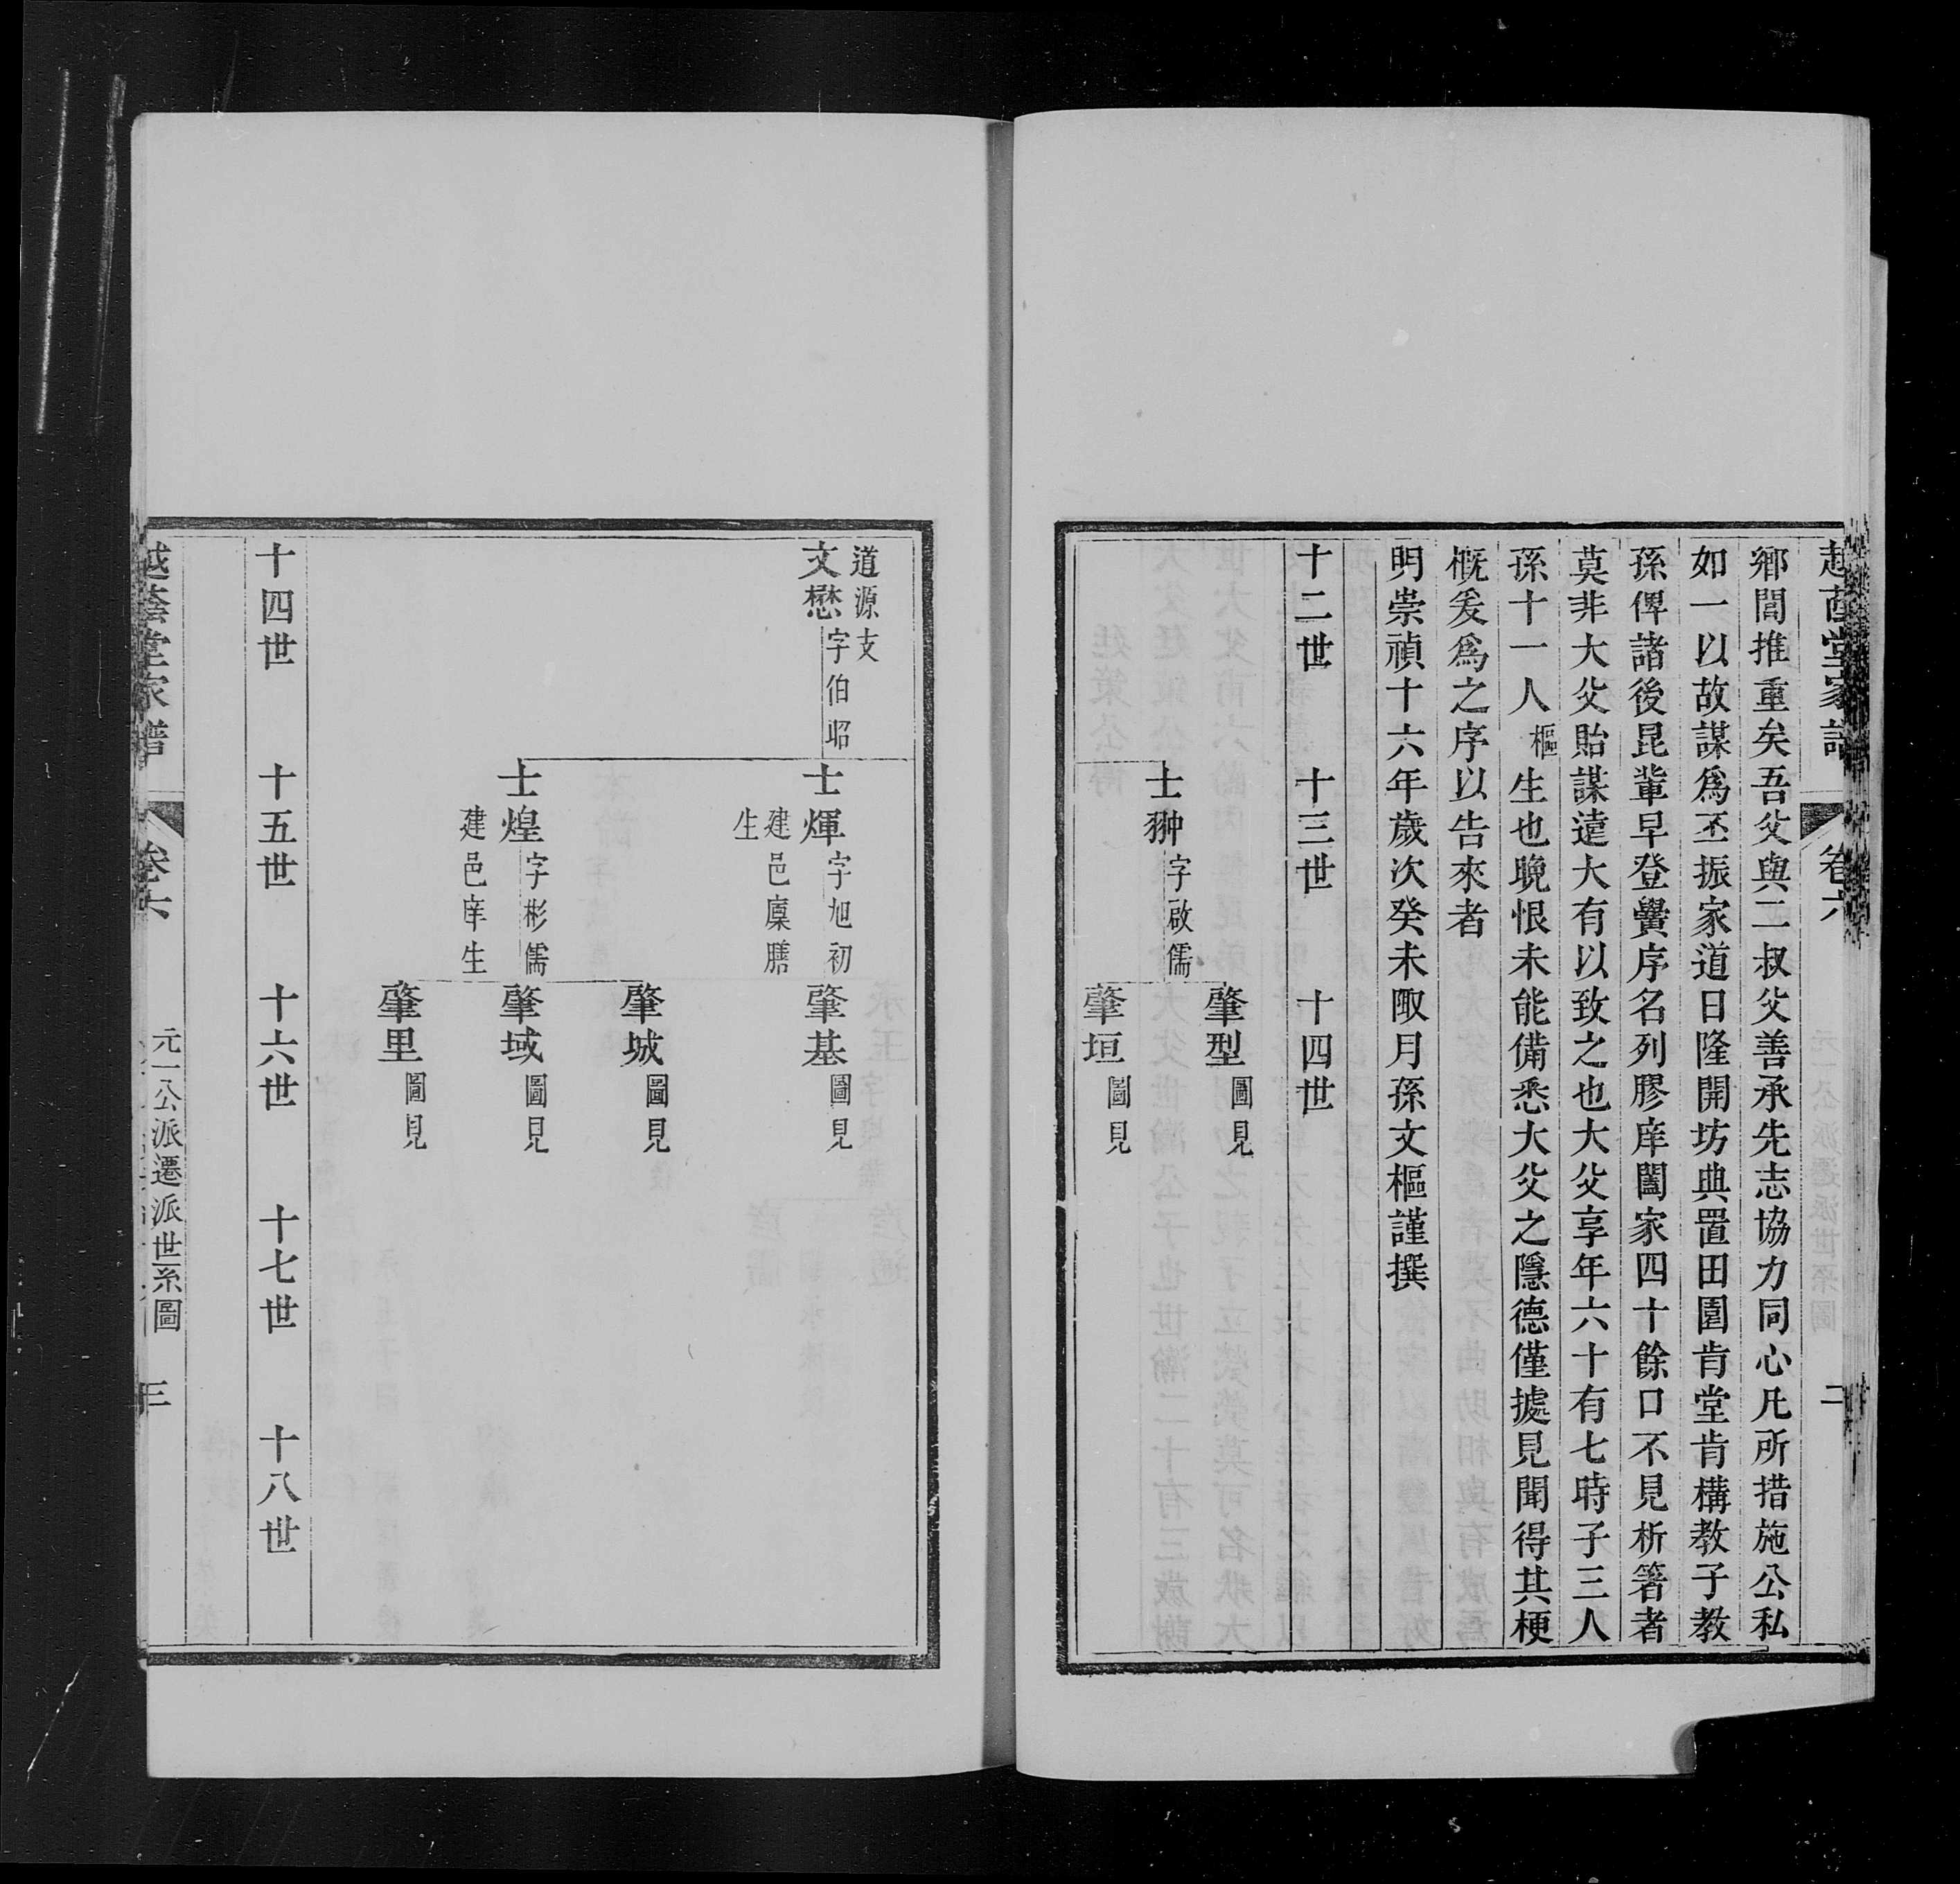 越蔭堂家譜 卷六 二
鄉閭推重矣吾父與二叔父善承先志協力同心凡所措施公私
如一以故謀為丕振家道日隆開坊典置田園肯堂肯構教子教
孫俾諸後昆輩早登黌序名列膠庠闔家四十餘口不見析箸者
莫非大父貽謀遠大有以致之也大父享年六十有七時子三人
孫十一人樞生也晚恨未能備悉大父之隱德僅據見聞得其梗
概爰為之序以告來者
明崇禎十六年歲次癸未陬月孫文樞謹撰
十二世 十三世 十四世
士翀 字啟儒
肇型 圖見
肇垣 圖見
道源支
文懋 字伯昭
士煇 字旭初
建邑廩膳
生
肇基 圖見
肇城 圖見
士煌 字彬儒
建邑庠生
肇域 圖見
肇里 圖見
十四世 十五世 十六世 十七世 十八世
越蔭堂家譜 卷六 元一公派遷派世系圖 三